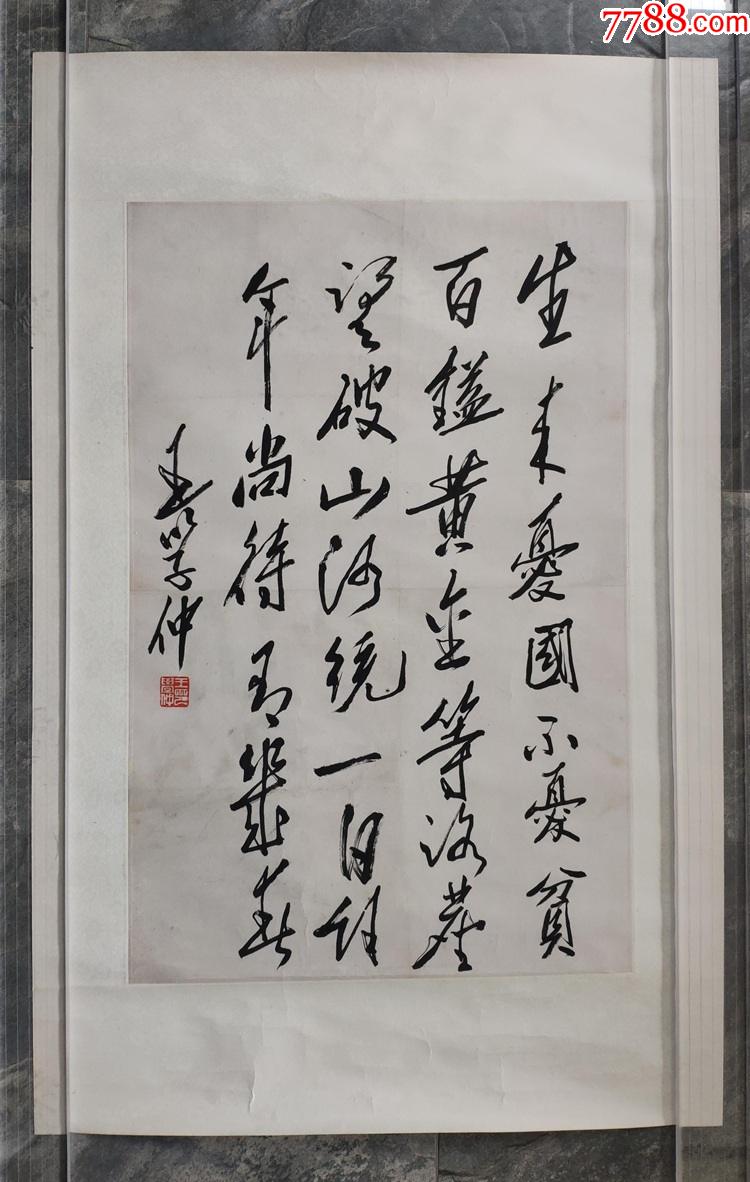 7788.com
生来憂國不憂貧
百鎰黄金等路塵
望破山河統一日計
年尚待幾春
王學仲
王學仲